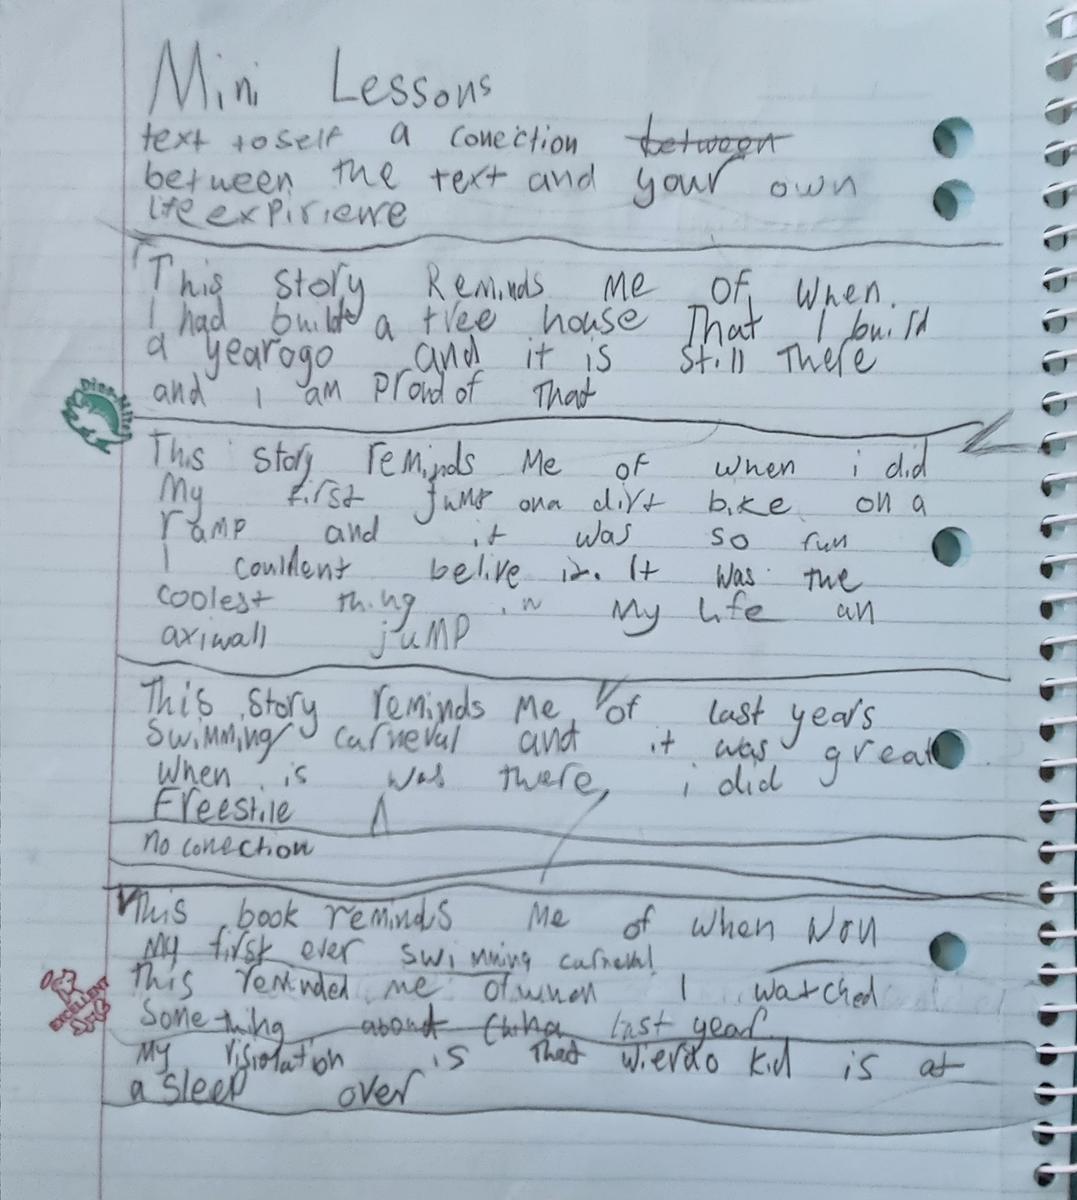 Mini Lessons
text to self a conection between
between the text and your own
life expirience
This story Reminds me of when.
I had builde a tree house That I build
a yearogo and it is still There
and i am Proud of That
This story reminds me of when i did
My first jump ona dirt bike on a
ramp and it was so fun
I couldent belive it. It was the
coolest thing in My life an
axiwall jump
This story reminds me of last years
swimming carneval and it was great
when is was there, i did
Freestile
no conection
This book reminds me of when Won
my first ever swimming carneval
This reminded me of when I watched
Something about China last year
My is That wierdo kid is at
a sleep over
Dino-Mite
EXCELLENT